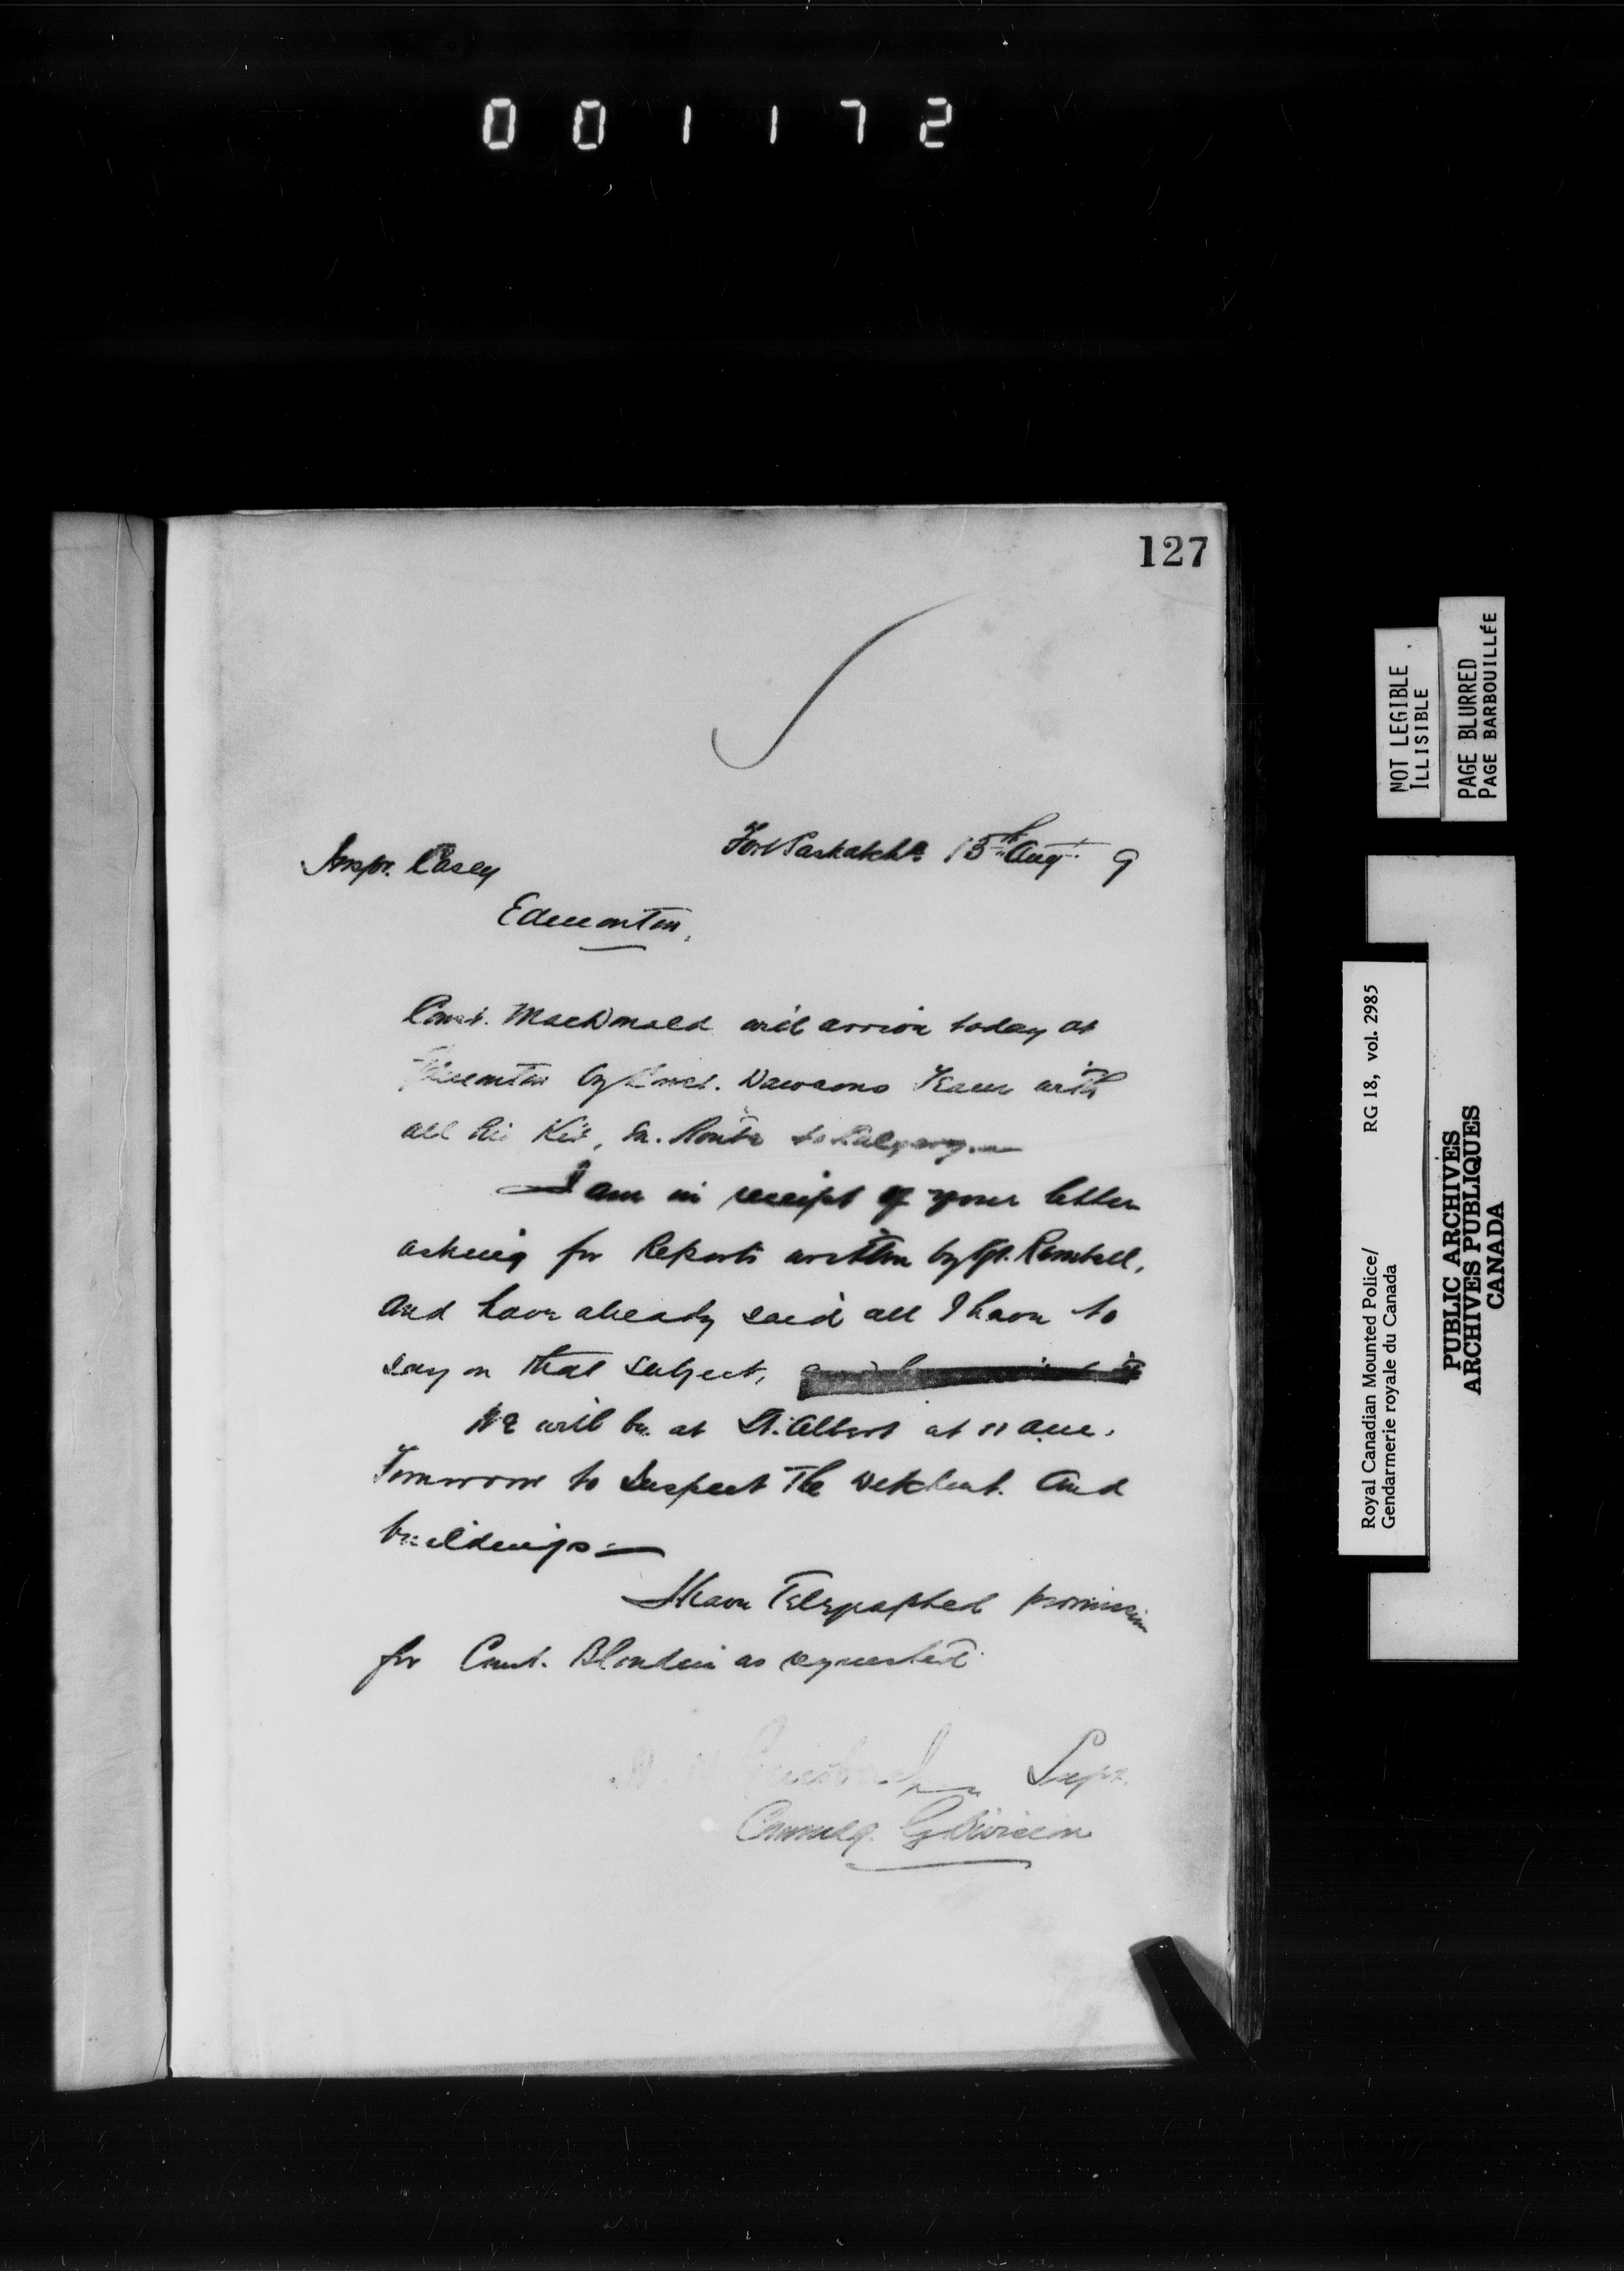 001172
127
Fort Saskatchn 15th Augt. 9
Inspr. Casey
Edmonton,
Const. MacDonald will arrive today at
Edmonton by Const. Dawsons Team with
all his Kit, En. Route to Calgary.—
I am in receipt of your letter
asking for Reports written by Sgt.
And have already said all I have to
say on that subject,
We will be at St. Albert at 11 am.
Tomorrow to Inspect The Detchmt. And
buildings—
I have Telegraphed permission
for Const. Blondin as requested
Supt.
Commdg. G Division
NOT LEGIBLE
ILLISIBLE
PAGE BLURRED
PAGE BARBOUILLÉE
Royal Canadian Mounted Police/ RG 18, vol. 2985
Gendarmerie royale du Canada
PUBLIC ARCHIVES
ARCHIVES PUBLIQUES
CANADA